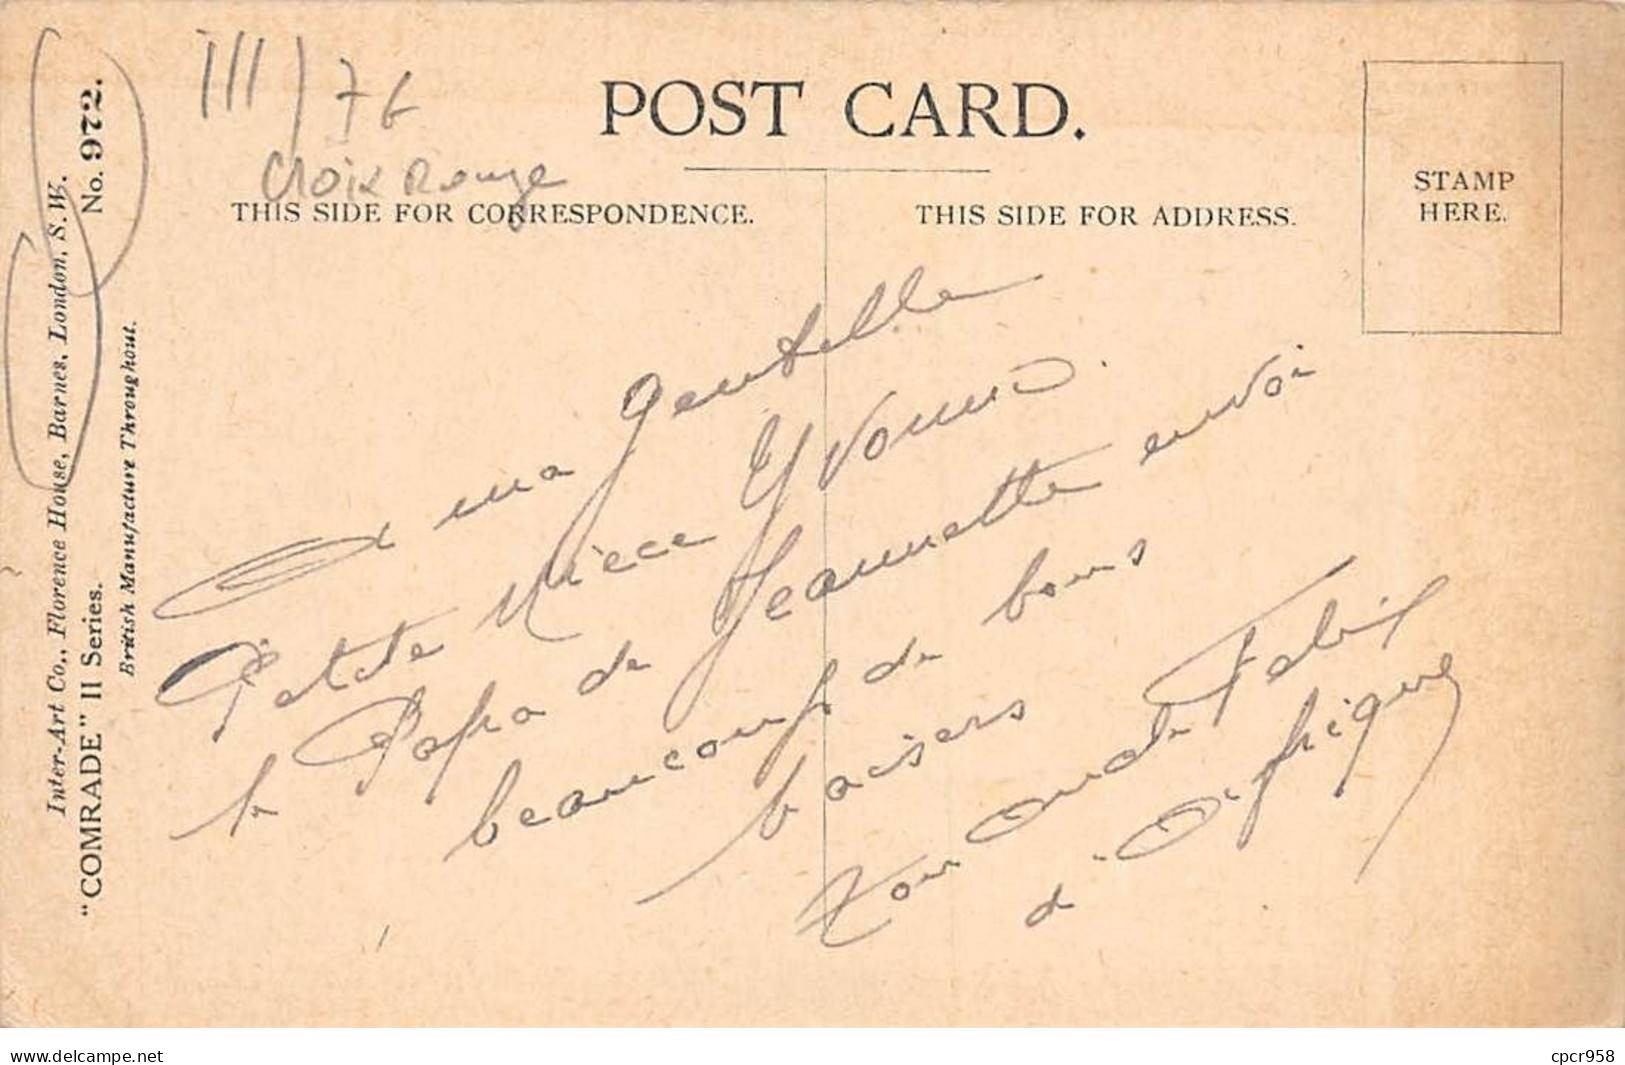 III / 76
Croix Rouge
POST CARD.
THIS SIDE FOR CORRESPONDENCE.
THIS SIDE FOR ADDRESS.
STAMP
HERE.
A ma gentille
Petite Nièce Yvonne.
le Papa de Jeannette envoi
beaucoup de bons
baisers
Ton Oncle Fabil
d'Afrique
Inter-Art Co., Florence House, Barnes, London, S.W.
"COMRADE" II Series. No. 972.
British Manufacture Throughout.
www.delcampe.net
cpcr958